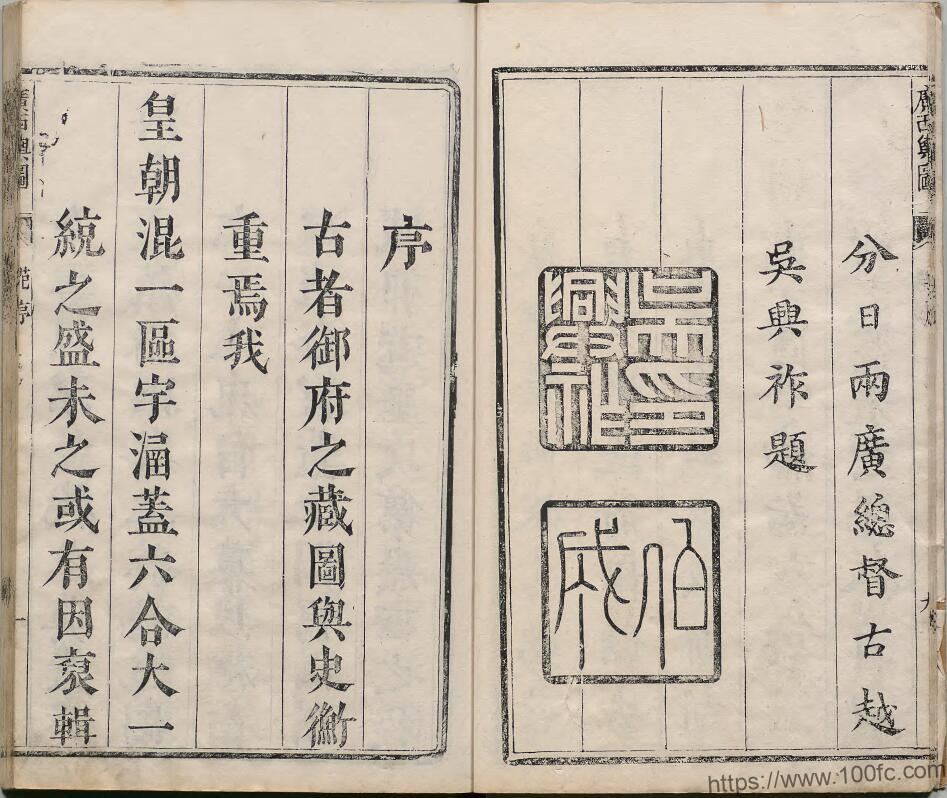 分日兩廣總督古越
吳興祚題
伯成
序
古者御府之藏圖與史衡
重焉我
皇朝混一區宇涵蓋六合大一
統之盛未之或有因裒輯
https://www.100fc.com/